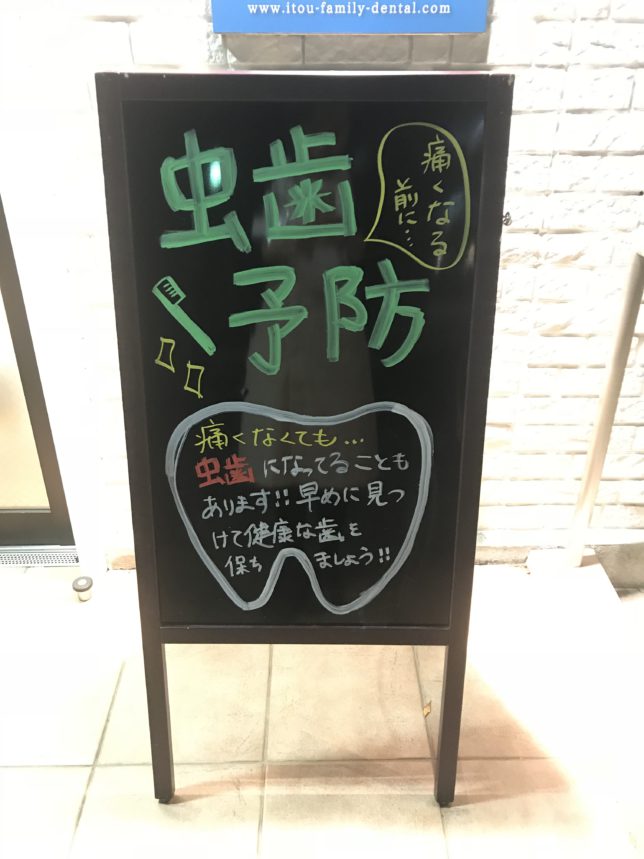 www.itou-family-dental.com
虫歯
予防
痛くなる
前に…
痛くなくても…
虫歯になってることも
あります!!早めに見つ
けて健康な歯を
保ちましょう!!